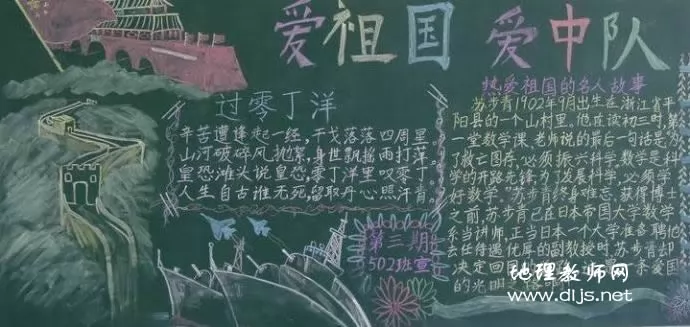 爱祖国 爱中队
过零丁洋
辛苦遭逢起一经,干戈落落四周星
山河破碎风抗絮,身世飘摇雨打萍。
皇恐滩头说皇恐,零丁洋里叹零丁。
人生自古谁无死,留取丹心照汗青。
第三期
502班宣
热爱祖国的名人故事
苏步青1902年9月出生在浙江省平
阳县的一个山村里。他在读初三时,第
一堂数学课,老师说的最后一句话是:为
了救亡图存,必须振兴科学。数学是科
学的开路先锋,为了发展科学,必须学
好数学。"苏步青终身难忘。获得博士
之前,苏步青已在日本帝国大学数学
系当讲师,正当日本一个大学准备聘他
去任待遇优厚的副教授时,苏步青却
决定回国
条爱国
的光明之路
地理教师网
www.dljs.net